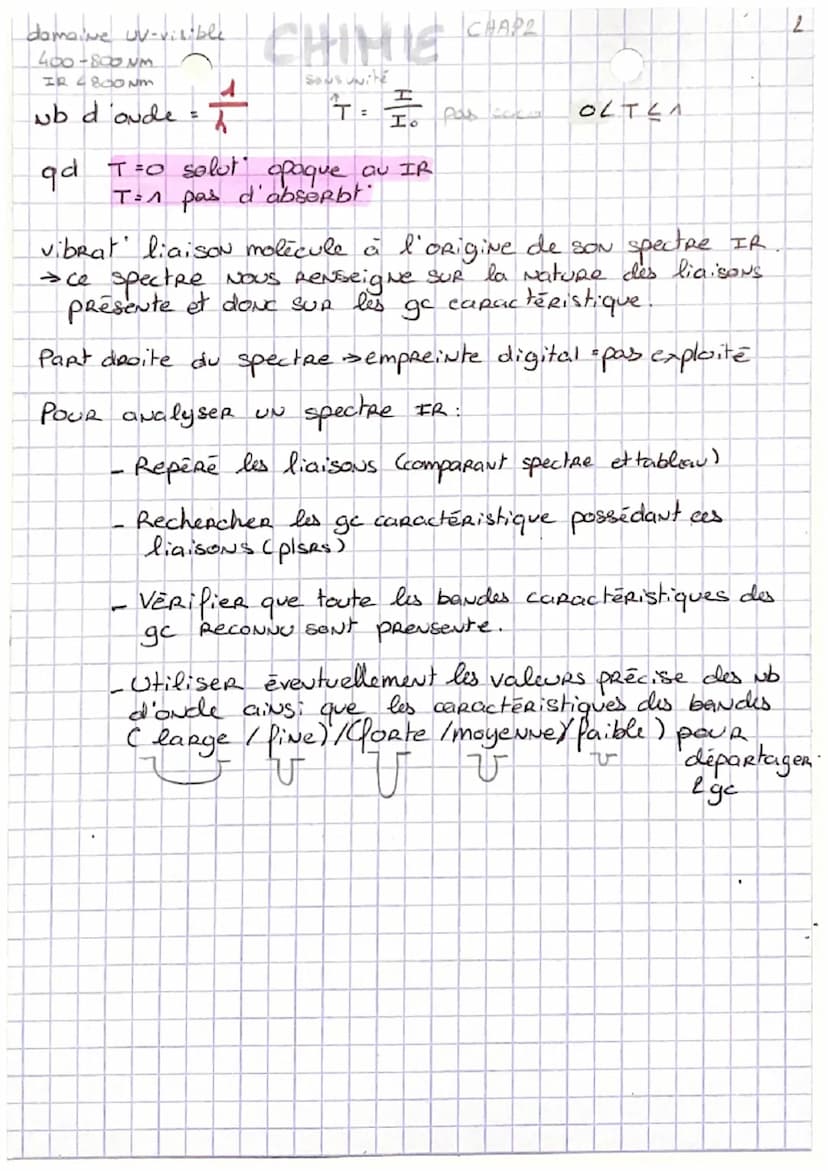 domaine UV-visible
CHIMIE
CHAP2
2
400-800 Nm
IR < 800 Nm
sans unité
Nb d'onde = 1/λ
T = I/I₀ pas
0 < T ≤ 1
qd T=0 solut° opaque au IR
T=1 pas d'absorbt°
vibrat° liaison molécule à l'origine de son spectre IR.
→ ce spectre nous renseigne sur la nature des liaisons
présente et donc sur les gc caractéristique.
Part droite du spectre → empreinte digital = pas exploité
Pour analyser un spectre IR :
- Repéré les liaisons (comparant spectre et tableau)
- Rechercher les gc caractéristique possédant ces
liaisons (plsrs)
- Vérifier que toute les bandes caractéristiques des
gc reconnu sont prensente.
- Utiliser éventuellement les valeurs précise des Nb
d'onde ainsi que les caractéristiques des bandes
( large / fine) / (forte / moyenne / faible ) pour
départager
2 gc